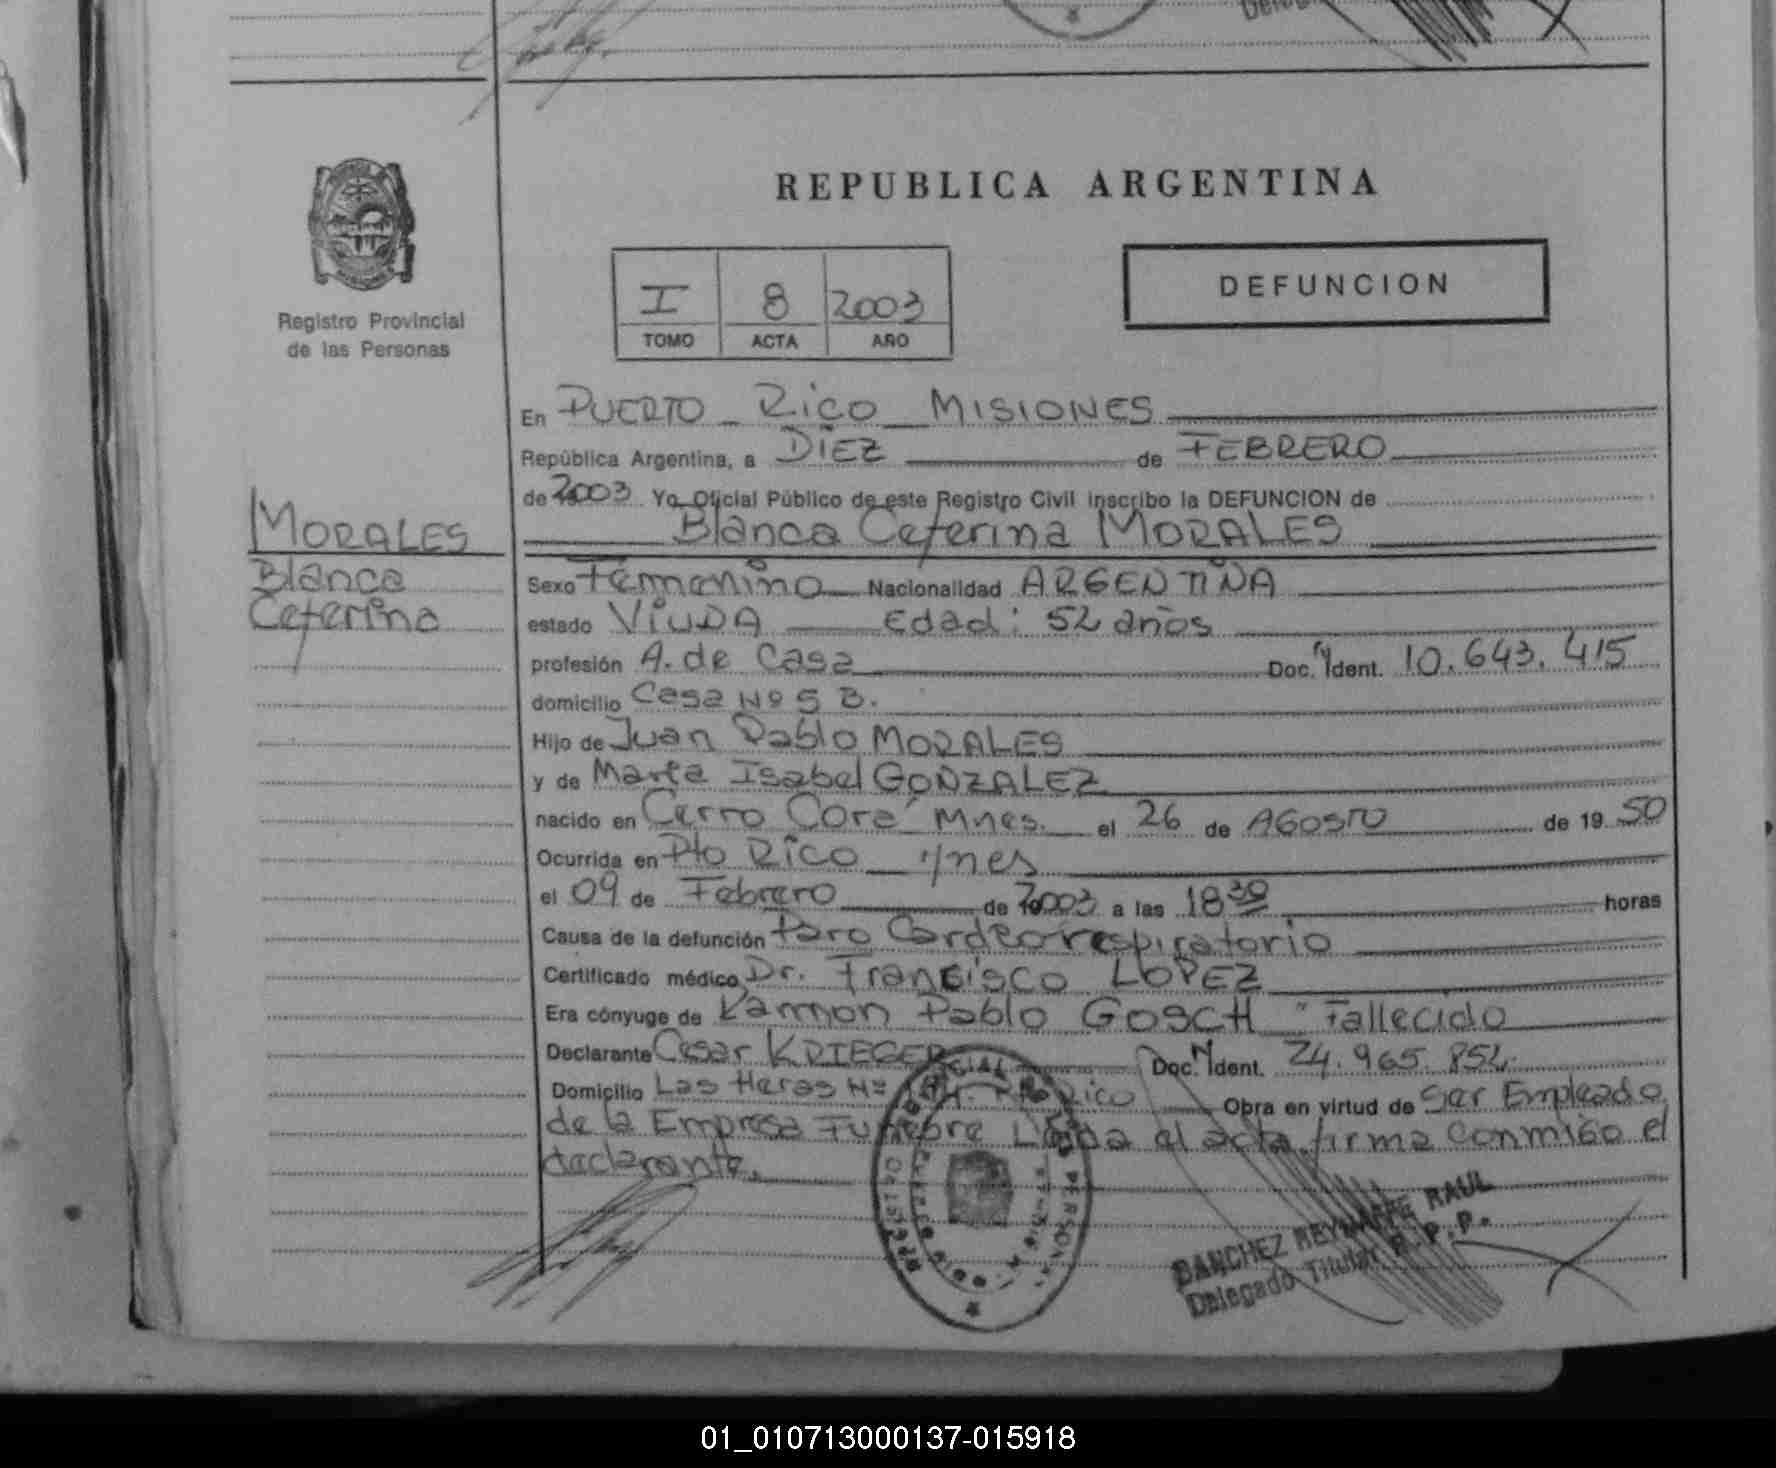 REPUBLICA ARGENTINA
DEFUNCION
I 8 2003
TOMO ACTA AÑO
Registro Provincial
de las Personas
MORALES
Blanca
Ceferina
En PUERTO RICO MISIONES
República Argentina, a DIEZ de FEBRERO
de 2003 Yo Oficial Público de este Registro Civil inscribo la DEFUNCION de
Blanca Ceferina MORALES
Sexo Femenino Nacionalidad ARGENTINA
estado VIUDA Edad: 52 años
profesión A. de Casa Doc. Ident. 10.643.415
domicilio Casa Nº 5 B.
Hijo de Juan Pablo MORALES
y de Maria Isabel GONZALEZ
nacido en Cerro Corá Mnes. el 26 de AGOSTO de 1950
Ocurrida en Pto Rico Mnes
el 09 de Febrero de 2003 a las 18 30 horas
Causa de la defunción Paro Cardeorrespiratorio
Certificado médico Dr. Francisco LOPEZ
Era cónyuge de Ramon Pablo GOSCH "Fallecido
Declarante Cesar KRIEGER Doc. Ident. 24.965.852
Domicilio Las Heras Nº Rico Obra en virtud de Ser Empleado
de la Empresa Funebre Leida el acta, firma conmigo el
declarante.
SANCHEZ RAUL
Delegado Titular R. P. P.
01_010713000137-015918